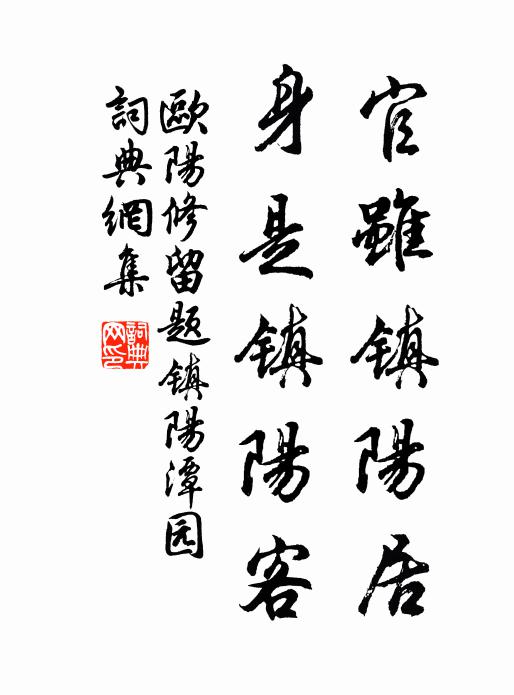 官雖镇陽居
身是镇陽客
歐陽修留題镇陽潭园
詞典網集
詞典網印